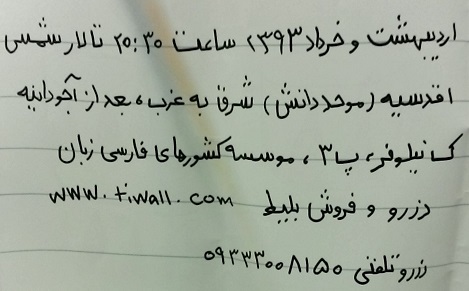 اردیبهشت و خرداد ۱۳۹۳، ساعت ۲۰:۳۰ تالار شمس
اقدسیه (موحد دانش) شرق به غرب، بعد از آجودانیه
ک نیلوفر، پ۳، موسسه کشورهای فارسی زبان
رزرو و فروش بلیط www.tiwall.com
رزرو تلفنی ۰۹۳۳۳۰۰۸۱۵۰